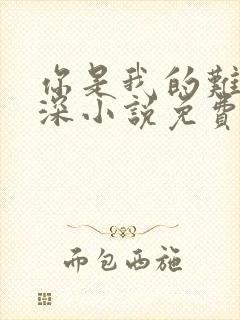 你是我的難
深小說免費
而包西施